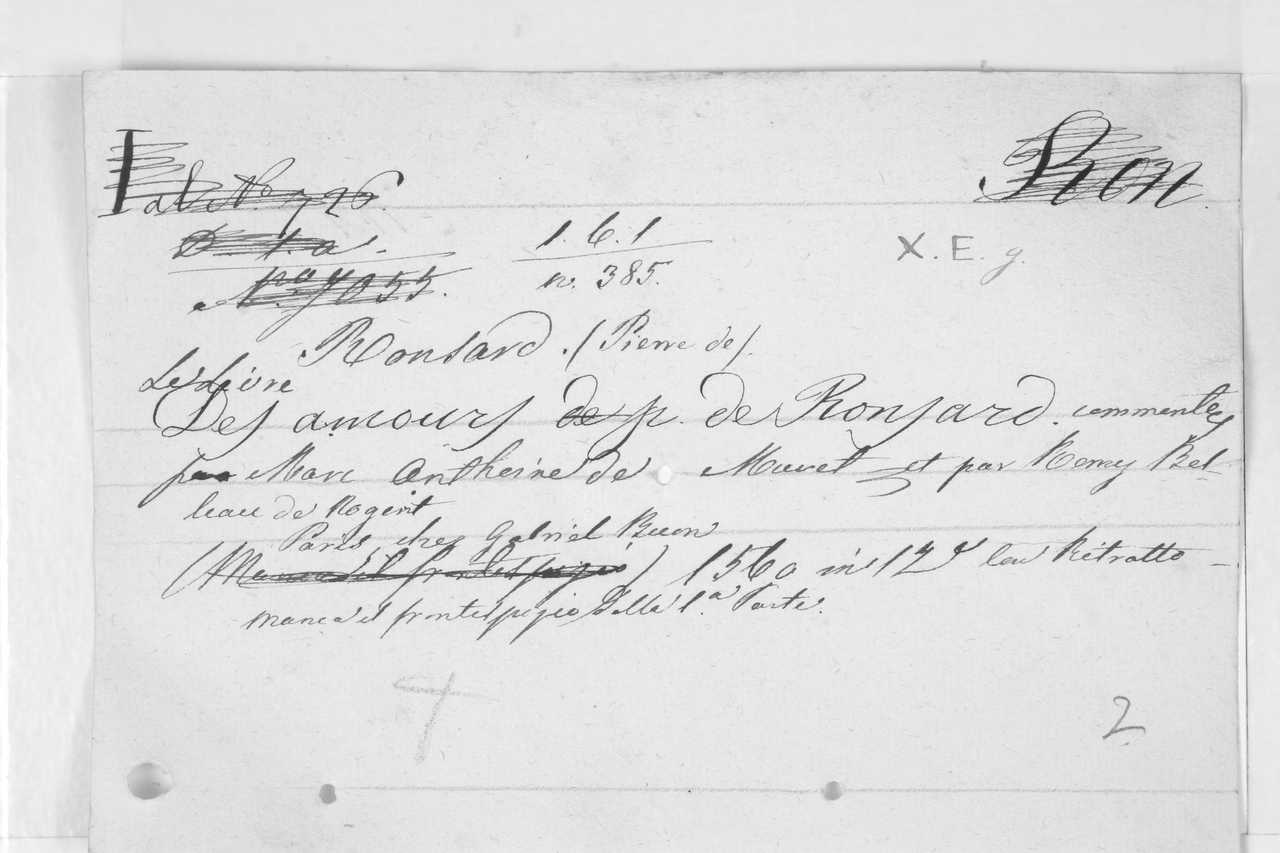 Ron
al N.o 726.
D 1.a
N.ro 7055.
1.6.1
n. 385.
X. E. g.
Ronsard. (Pierre de).
Le Livre
Des amours de p. de Ronsard. commentes
par Marc Anthoine de Muret et par Remy Bel-
leau de Nogent
Paris, chez Gabriel Buon
(Manca il frontespizio) 1560 in 12.o con Ritratto -
manca il frontespizio della 1.a Parte.
2